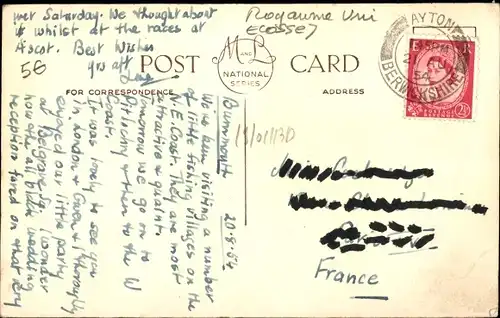 wet Saturday. We thought about
it whilst at the races at
Ascot. Best Wishes
yrs aff
56
Royaume Uni
ECOSSE
POST CARD
M & L
NATIONAL
SERIES
FOR CORRESPONDENCE
ADDRESS
AYTON
BERWICKSHIRE
54
2½
18/01/13D
20-8-54
We've been visiting a number
of little fishing villages on the
N.E Coast. They are most
attractive & quaint.
Tomorrow we go on to
Pitlochry & then to the W
Coast.
It was lovely to see you
in London & Gwen & I thoroughly
enjoyed our little party
at Belgravia. I wonder
how the all bulk wedding
reception fared on that very
Miss
France